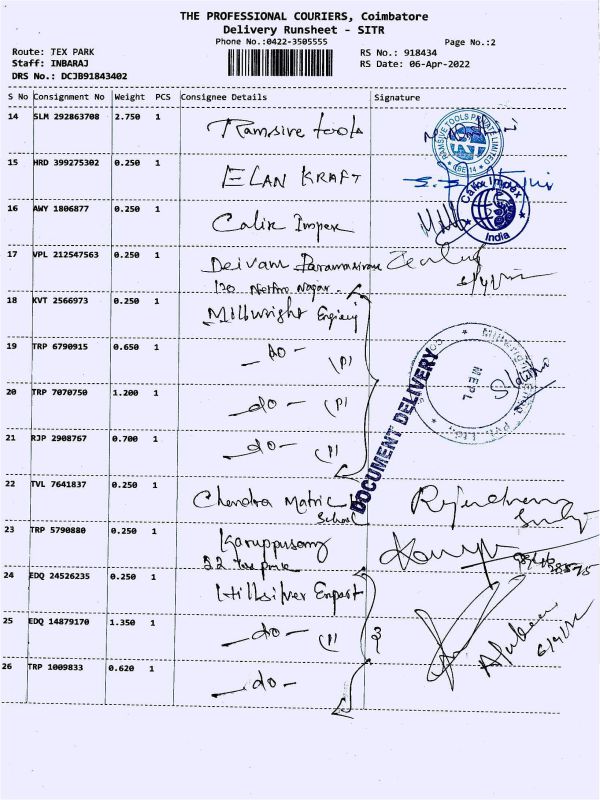 THE PROFESSIONAL COURIERS, Coimbatore
Delivery Runsheet - SITR
Phone No.:0422-3505555 Page No.:2
Route: TEX PARK RS No.: 918434
Staff: INBARAJ RS Date: 06-Apr-2022
DRS No.: DCJB91843402
S No Consignment No Weight PCS Consignee Details Signature
14 SLM 292863708 2.750 1 Ramsive tools
RAMSIVE TOOLS PRIVATE LIMITED
15 HRD 399275302 0.250 1 ELAN KRAFT
16 AWY 1806877 0.250 1 Calix Impex
Calix Impex
India
17 VPL 212547563 0.250 1 Deivam Paramasivam
120 Nethro Nagar
18 KVT 2566973 0.250 1 Millwright
19 TRP 6790915 0.650 1 - do -
20 TRP 7070750 1.200 1 - do -
MEPL
DOCUMENT DELIVERY
21 RJP 2908767 0.700 1 - do -
22 TVL 7641837 0.250 1 Chendra Matric
School
23 TRP 5790880 0.250 1 Karuppusamy
22
24 EDQ 24526235 0.250 1 Hillsilver Export
25 EDQ 14879170 1.350 1 - do -
26 TRP 1009833 0.620 1 - do -